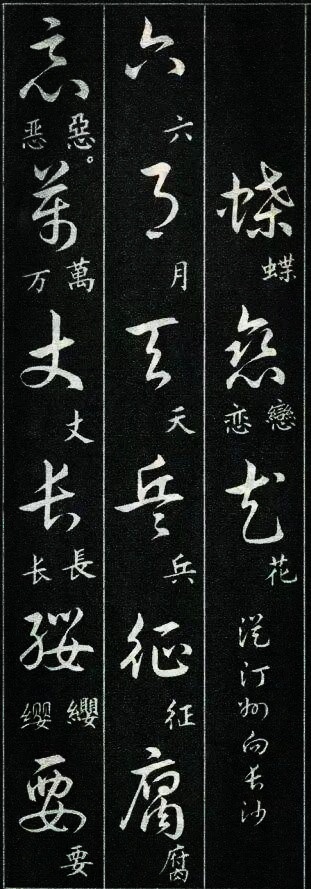 蝶戀花
蝶 戀 恋 花
從汀州向長沙
六月天兵征腐
六 月 天 兵 征 腐
惡萬丈長纓要
惡。 恶 萬 万 丈 長 长 纓 缨 要